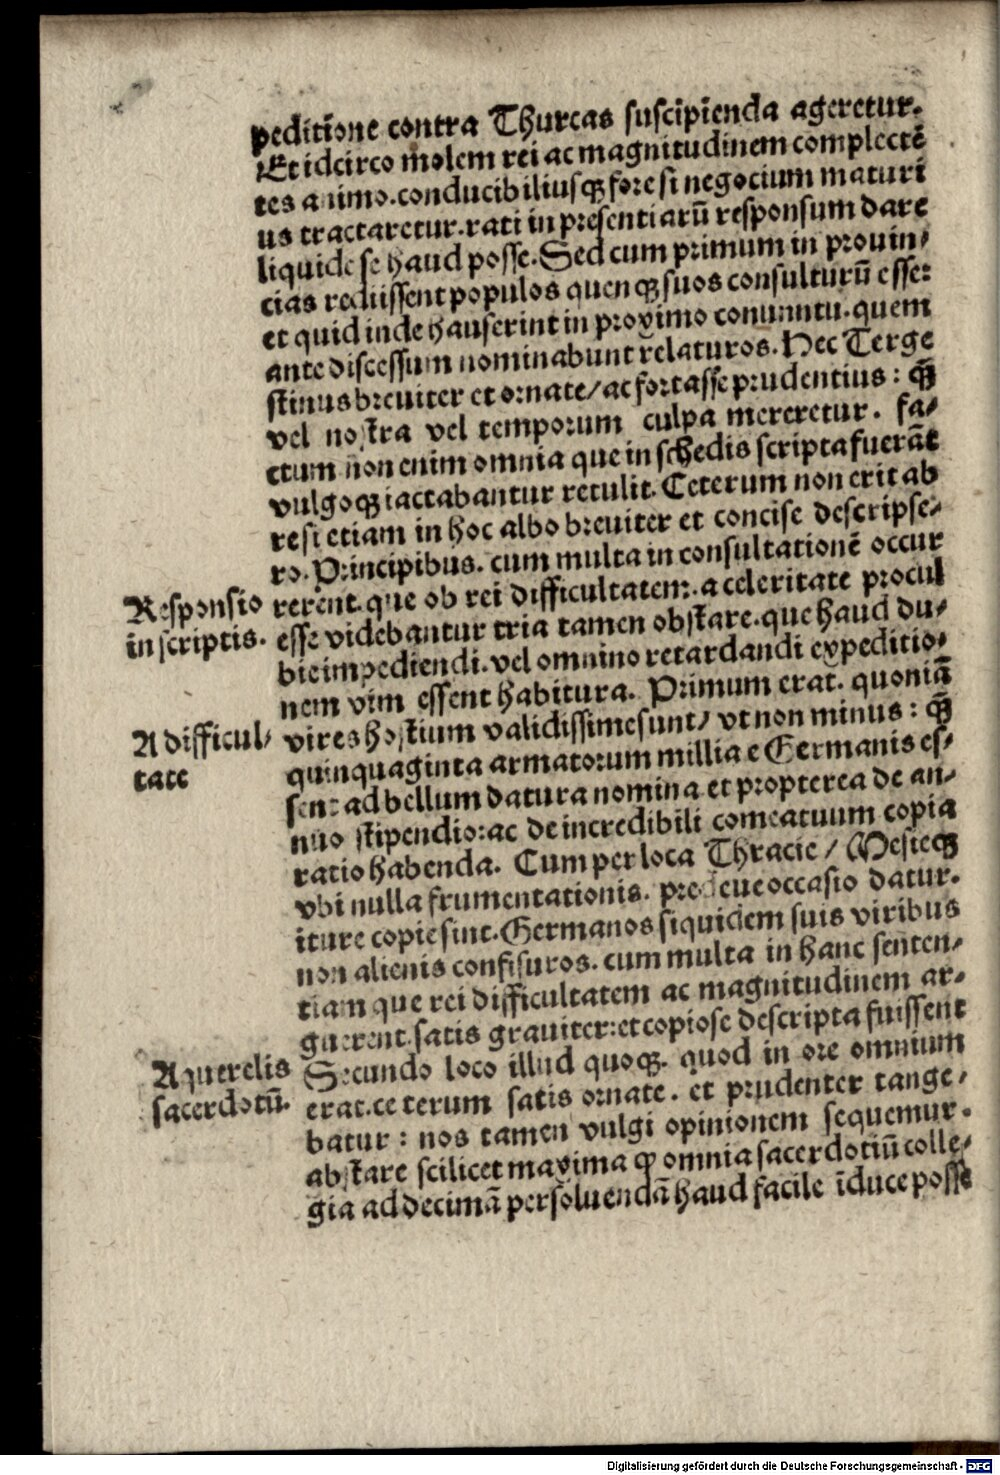 peditione contra Thurcas suscipienda ageretur.
Et idcirco molem rei ac magnitudinem complectē
tes animo. conducibiliusqꝫ fore si negocium maturi
us tractaretur. rati in presentiarū responsum dare
liquide se haud posse. Sed cum primum in prouin/
cias rediissent populos quenqꝫ suos consulturū esse:
et quid inde hauserint in proximo conuuntu. quem
ante discessum nominabunt relaturos. Hec Terge
stinus breuiter et ornate/ ac fortasse prudentius: qꝫ̄
vel nostra vel temporum culpa mereretur. fa/
ctum non enim omnia que in schedis scripta fuerāt
vulgoqꝫ iactabantur retulit. Ceterum non erit ab
re si etiam in hoc albo breuiter et concise descripse/
ro. Principibus. cum multa in consultationē occur
Responsio
in scriptis.
rerent. que ob rei difficultatem. a celeritate procul
esse videbantur tria tamen obstare. que haud du/
bie impediendi. vel omnino retardandi expeditio/
nem vim essent habitura. Primum erat. quoniā
A difficul/
tate
vires hostium validissime sunt/ vt non minus: qꝫ̄
quinquaginta armatorum millia e Germanis es/
sent ad bellum datura nomina et propterea de an/
nuo stipendio: ac de incredibili comeatuum copia
ratio habenda. Cum per loca Thracie/ Mesieqꝫ
vbi nulla frumentationis. predeue occasio datur.
iture copie sint. Germanos siquidem suis viribus
non alienis confisuros. cum multa in hanc senten/
tiam que rei difficultatem ac magnitudinem ar/
guerent. satis grauiter: et copiose descripta fuissent
A querelis
sacerdotū.
Secundo loco illud quoqꝫ. quod in ore omnium
erat. ceterum satis ornate. et prudenter tange/
batur: nos tamen vulgi opinionem sequemur.
abstare scilicet maxima ꝙ omnia sacerdotiū colle/
gia ad decimā persoluendā haud facile īduce posse
Digitalisierung gefördert durch die Deutsche Forschungsgemeinschaft - DFG